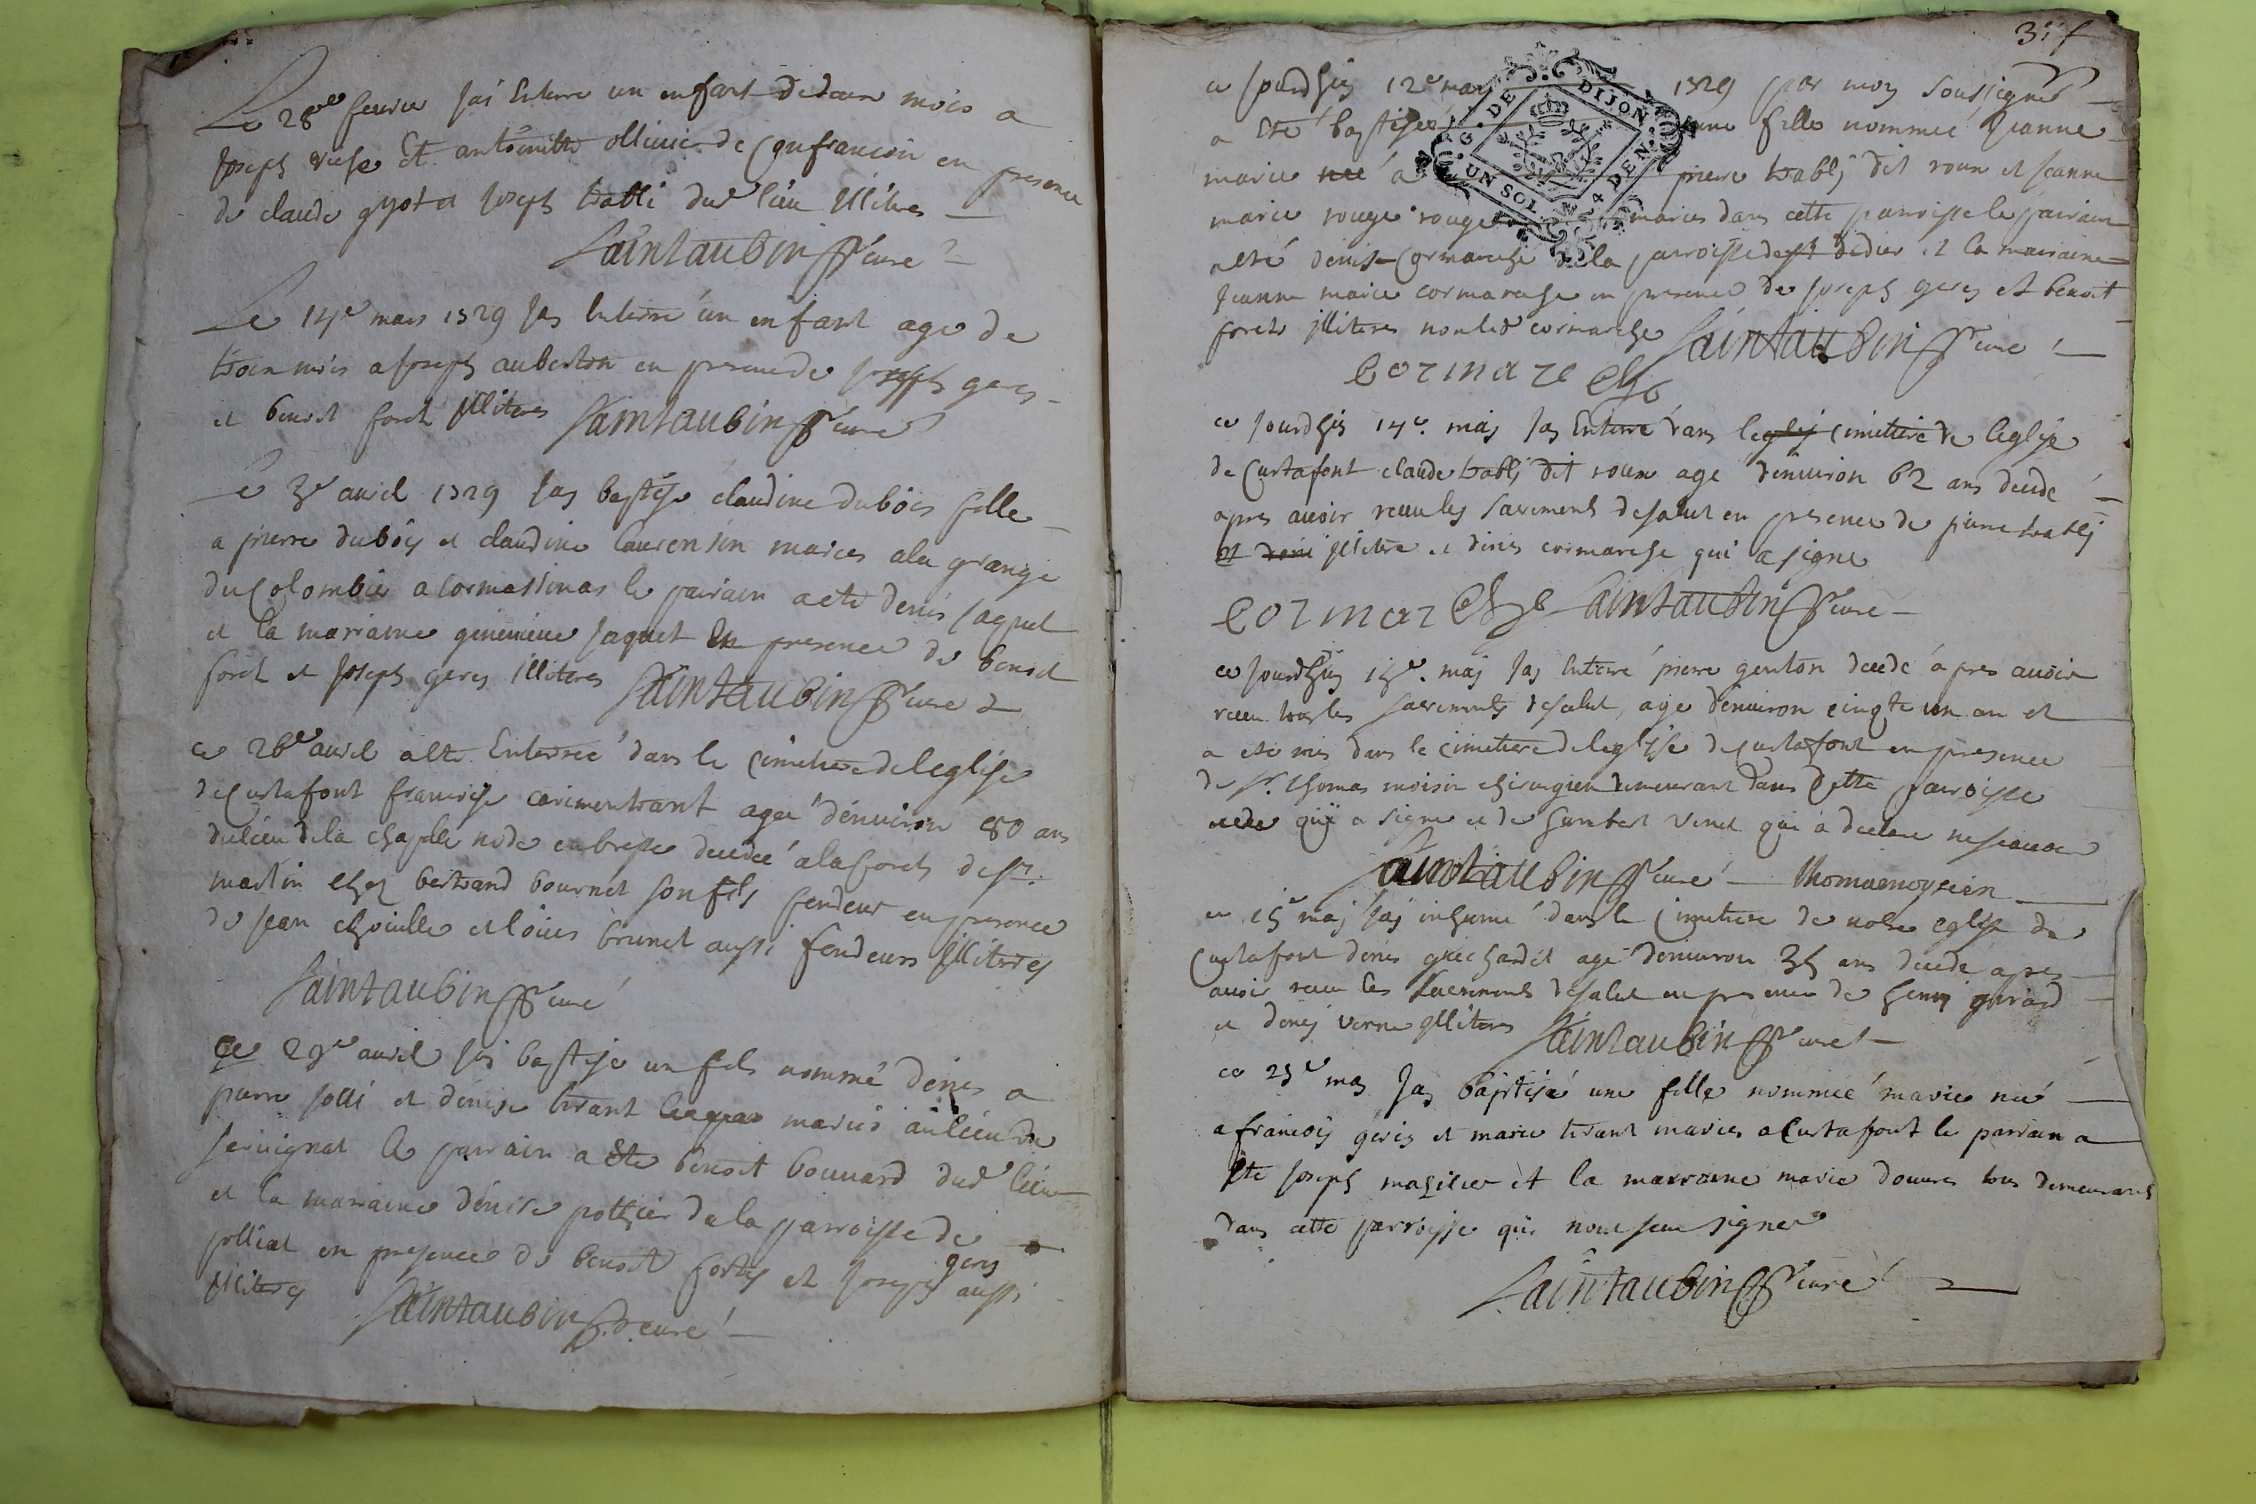 Le 28e fevrier jai Enterre un enfant de deux mois a
joseph ruse Et antoinette ollivier de Confrancon en presence
de claude guyot et joseph trabli dud lieu jllitres
Saintaubin curé
Le 14e mars 1729 jay Enterré un enfant age de
trois mois a joseph auberton en presence de joseph geres
et benoit foret jllitres Saintaubin curé
Le 3e avril 1729 jay baptisé claudine dubois fille
a pierre dubois et claudine laurensin mariés a la grange
du Colombier a cormassinas le pairain a ete denis jaquet
et la marraine genevieve jaquet En presence de benoit
foret et joseph geres illitres Saintaubin curé
ce 26e avril a ete Enterreé dans le cimetiere de leglise
de Curtafont francoise carimentrant ageé denviron 80 ans
du lieu de la chapelle node en bresse decedeé a la forets de st.
martin chez bertrand bournet son fils fendeur en presence
de jean choville et loüis brunet aussi fendeurs jllitres
Saintaubin curé
Ce 29e avril jai baptisé un fils nommé denis a
pierre jolli et denise tirant mariés au lieu de
servignat le parrain a Ete benoit bouvard dud lieu
et la marraine denise pothier de la parroisse de
polliat en presence de benoit forets et joseph geres aussi
jllitres Saintaubin curé
ce jourdhuy 12e may 1729 par moy soussigné
a Eté baptiseé une fille nommeé Jeanne
marie neé a pierre trablj dit roux et jeanne
marie rouge rouge mariés dans cette parroisse le pairain
a eté denis Cormareche de la parroisse de st didier et la marraine
jeanne marie cormareche en presence de joseph geres et benoit
forets jlliteres non led cormareche Saintaubin curé
cormareche
G. DE DIJON
UN SOL 4 DEN.
ce jourdhuy 14e. may jay Enterré dans leglis cimetiere de leglise
de Curtafont claude trablj dit roux agé denviron 62 ans decedé
apres avoir receu les sacrements de salut en presence de pierre trablj
et deni jllitere et denis cormareche qui a signe
cormareche Saintaubin curé
ce jourdhuy may jay Enteré pierre genton decedé apres avoir
receu tous les sacrements de salut, agé denviron cinqte un an et
a esté mis dans le cimetiere de leglise de curtafont en presence
de sr. thomas moisin chirurgien demeurant dans Cette parroisse
qui a signe et de humbert venet qui a declare ne scavoir
Saintaubin curé Thomamoysein
ce 15e may jay inhumé dans le Cimetiere de notre eglise de
Curtafont denis guichardet agé denviron 35 ans decedé apres
avoir receu les sacrements de salut en presence de henry girard
et denis verne jlliteres Saintaubin curé
ce 25e may jay baptisé une fille nommeé marie neé
a francois geres et marie tirant mariés a Curtafont le parrain a
Ete joseph et la marraine marie tous demeurants
dans cette parroisse qui nont sceu signer
Saintaubin curé